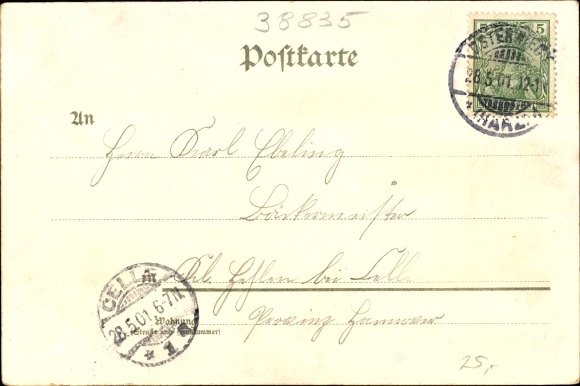 38835
Postkarte
5
OSTERWIECK
28.5.01. 12-1
* (HARZ)
An
Herrn Karl Ebeling
Bäckermeister
Kl. Hehlen bei Celle
CELLE
28.5.01 6-7N
* 1
Wohnung
(Straße und Hausnummer)
Provinz Hannover
25,-